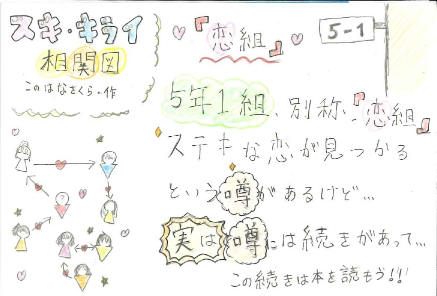 スキ・キライ
相関図
このはなさくら・作
『恋組』
5-1
5年1組、別称、『恋組』
ステキな恋が見つかる
という噂があるけど…
実は噂には続きがあって…
この続きは本を読もう!!!